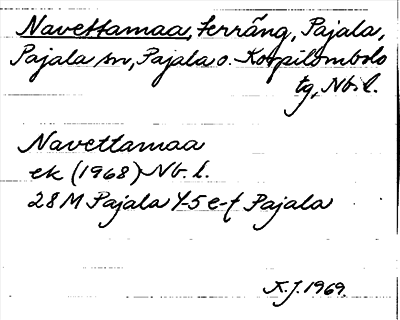 Navettamaa, terräng, Pajala,
Pajala sn, Pajala o. Korpilombolo
tg, Nb. l.
Navettamaa
ek (1968) Nb. l.
28 M Pajala 4-5 e-f Pajala
K.J. 1969.